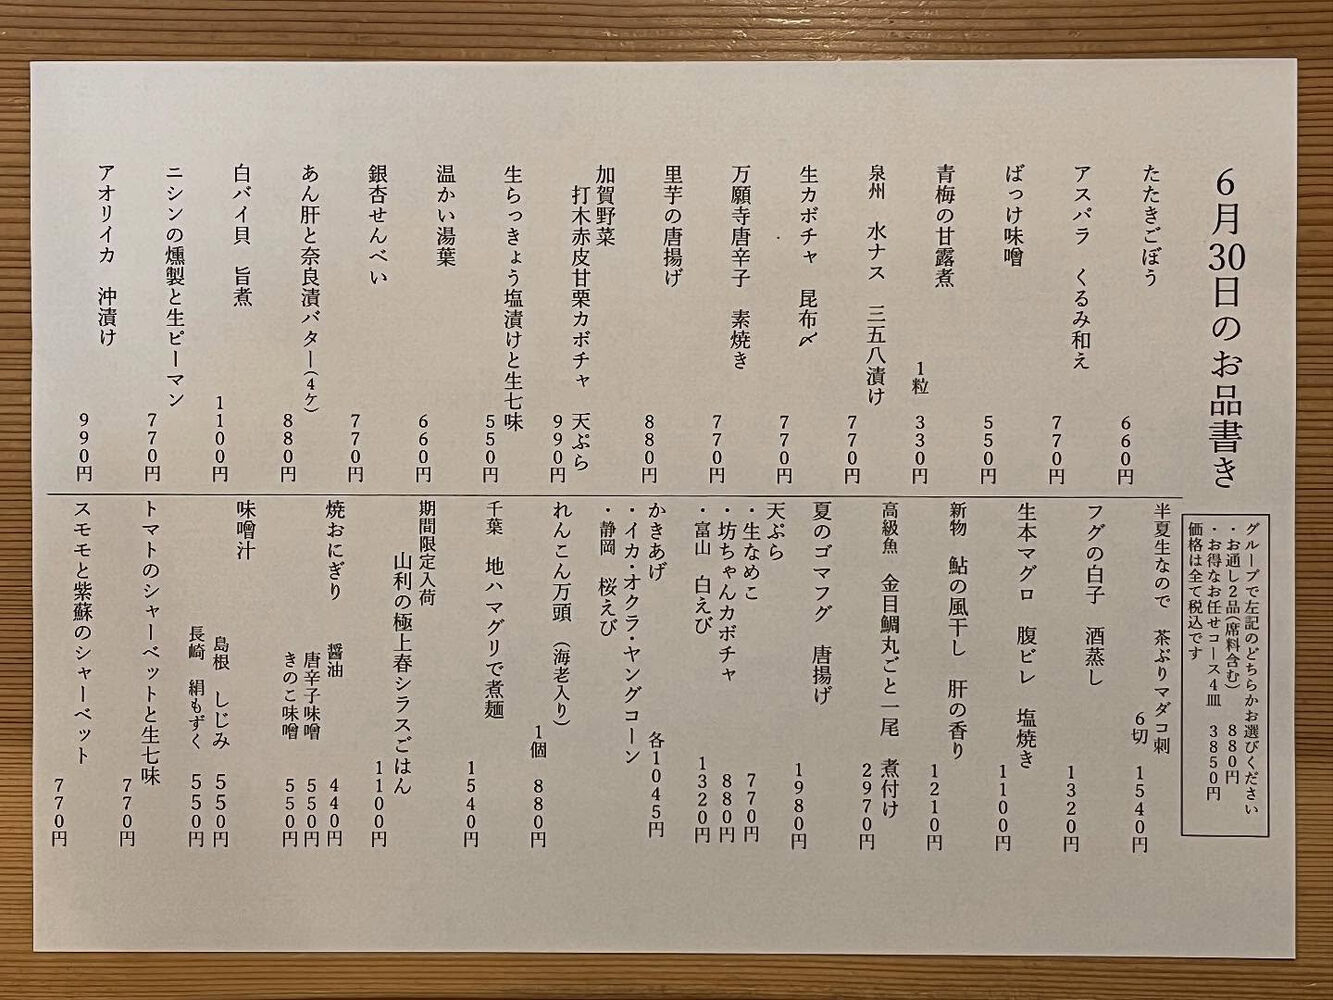 6月30日のお品書き
たたきごぼう
660円
アスパラ くるみ和え
770円
ばっけ味噌
550円
青梅の甘露煮
1粒 330円
泉州 水ナス 三五八漬け
770円
生カボチャ 昆布〆
770円
万願寺唐辛子 素焼き
770円
里芋の唐揚げ
880円
加賀野菜
打木赤皮甘栗カボチャ 天ぷら
990円
生らっきょう塩漬けと生七味
550円
温かい湯葉
660円
銀杏せんべい
770円
あん肝と奈良漬バター(4ケ)
880円
白バイ貝 旨煮
1100円
ニシンの燻製と生ピーマン
770円
アオリイカ 沖漬け
990円
グループで左記のどちらかお選びください
・お通し2品(席料含む) 880円
・お得なお任せコース4皿 3850円
価格は全て税込です
半夏生なので 茶ぶりマダコ刺
6切 1540円
フグの白子 酒蒸し
1320円
生本マグロ 腹ビレ 塩焼き
1100円
新物 鮎の風干し 肝の香り
1210円
高級魚 金目鯛丸ごと一尾 煮付け
2970円
夏のゴマフグ 唐揚げ
1980円
天ぷら
・生なめこ 770円
・坊ちゃんカボチャ 880円
・富山 白えび 1320円
かきあげ 各1045円
・イカ・オクラ・ヤングコーン
・静岡 桜えび
れんこん万頭 (海老入り)
1個 880円
千葉 地ハマグリで煮麺
1540円
期間限定入荷
山利の極上春シラスごはん
1100円
焼おにぎり 醤油 440円
唐辛子味噌 550円
きのこ味噌 550円
味噌汁
島根 しじみ 550円
長崎 絹もずく 550円
トマトのシャーベットと生七味
770円
スモモと紫蘇のシャーベット
770円